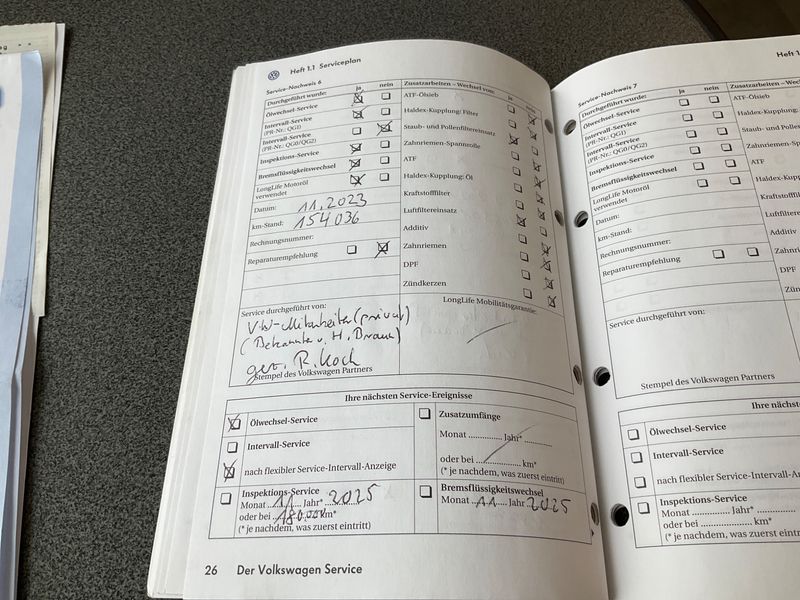 Heft 1.1 Serviceplan
Service-Nachweis 6
Durchgeführt wurde: ja nein
Ölwechsel-Service
Intervall-Service
(PR-Nr.: QG1)
Intervall-Service
(PR-Nr.: QG0/QG2)
Inspektions-Service
Bremsflüssigkeitswechsel
LongLife Motoröl
verwendet
Datum: 11.2023
km-Stand: 154 036
Rechnungsnummer:
Reparaturempfehlung
Zusatzarbeiten – Wechsel von: ja nein
ATF-Ölsieb
Haldex-Kupplung: Filter
Staub- und Pollenfiltereinsatz
Zahnriemen-Spannrolle
ATF
Haldex-Kupplung: Öl
Kraftstofffilter
Luftfiltereinsatz
Additiv
Zahnriemen
DPF
Zündkerzen
Service durchgeführt von:
VW-Mitarbeiter (privat)
(Bekannter v. H. Braun)
gez. R. Koch
Stempel des Volkswagen Partners
LongLife Mobilitätsgarantie:
Ihre nächsten Service-Ereignisse
Ölwechsel-Service
Intervall-Service
nach flexibler Service-Intervall-Anzeige
Inspektions-Service
Monat 11 Jahr* 2025
oder bei 180.000 km*
(* je nachdem, was zuerst eintritt)
Zusatzumfänge
Monat .............. Jahr* ..............
oder bei .................. km*
(* je nachdem, was zuerst eintritt)
Bremsflüssigkeitswechsel
Monat 11 Jahr 2025
26 Der Volkswagen Service
Heft 1
Service-Nachweis 7
Durchgeführt wurde: ja nein
Ölwechsel-Service
Intervall-Service
(PR-Nr.: QG1)
Intervall-Service
(PR-Nr.: QG0/QG2)
Inspektions-Service
Bremsflüssigkeitswechsel
LongLife Motoröl
verwendet
Datum:
km-Stand:
Rechnungsnummer:
Reparaturempfehlung
Zusatzarbeiten – Wechsel
ATF-Ölsieb
Haldex-Kupplung:
Staub- und Pollenf
Zahnriemen-Sp
ATF
Haldex-Kupp
Kraftstofffilt
Luftfilter
Additiv
Zahn
DPF
Zün
Service durchgeführt von:
Stempel des Volkswagen Partners
Ihre näch
Ölwechsel-Service
Intervall-Service
nach flexibler Service-Intervall-An
Inspektions-Service
Monat .............. Jahr* ..............
oder bei .................. km*
(* je nachdem, was zuerst eintritt)